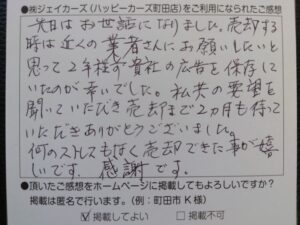 ●㈱ジェイカーズ(ハッピーカーズ町田店)をご利用になられたご感想
先日はお世話になりました。売却する
時は近くの業者さんにお願いしたいと
思って2年程ず貴社の広告を保存して
いたのが幸いでした。私共の要望を
聞いていただき売却まで2カ月も待って
いただきありがとうございました。
何のストレスもなく売却できた事が嬉
しいです。感謝です。
●頂いたご感想をホームページに掲載してもよろしいですか?
掲載は匿名で行います。(例:町田市 K様)
☑掲載してよい □掲載不可